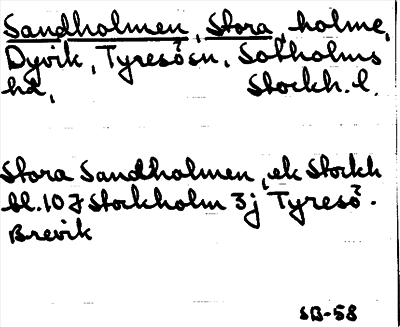 Sandholmen, Stora, holme,
Dyvik, Tyresö sn, Sotholms
hd, Stockh. l.
Stora Sandholmen, ek Stockh
bl. 10 J Stockholm 3j Tyresö -
Brevik
SB-58